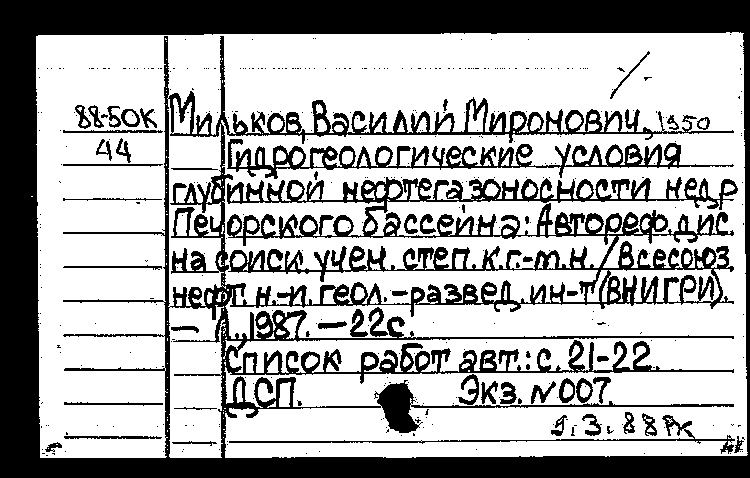 88-50К Мильков, Василий Миронович, 1950
44 Гидрогеологические условия
глубинной нефтегазоносности недр
Печорского бассейна: Автореф. дис.
на соиск. учен. степ. к.г.-м.н. / Всесоюз.
нефт. н.-и. геол.-развед. ин-т (ВНИГРИ).
— Л., 1987. — 22с.
Список работ авт.: с. 21-22.
ДСП. Экз. N 007.
3. 88